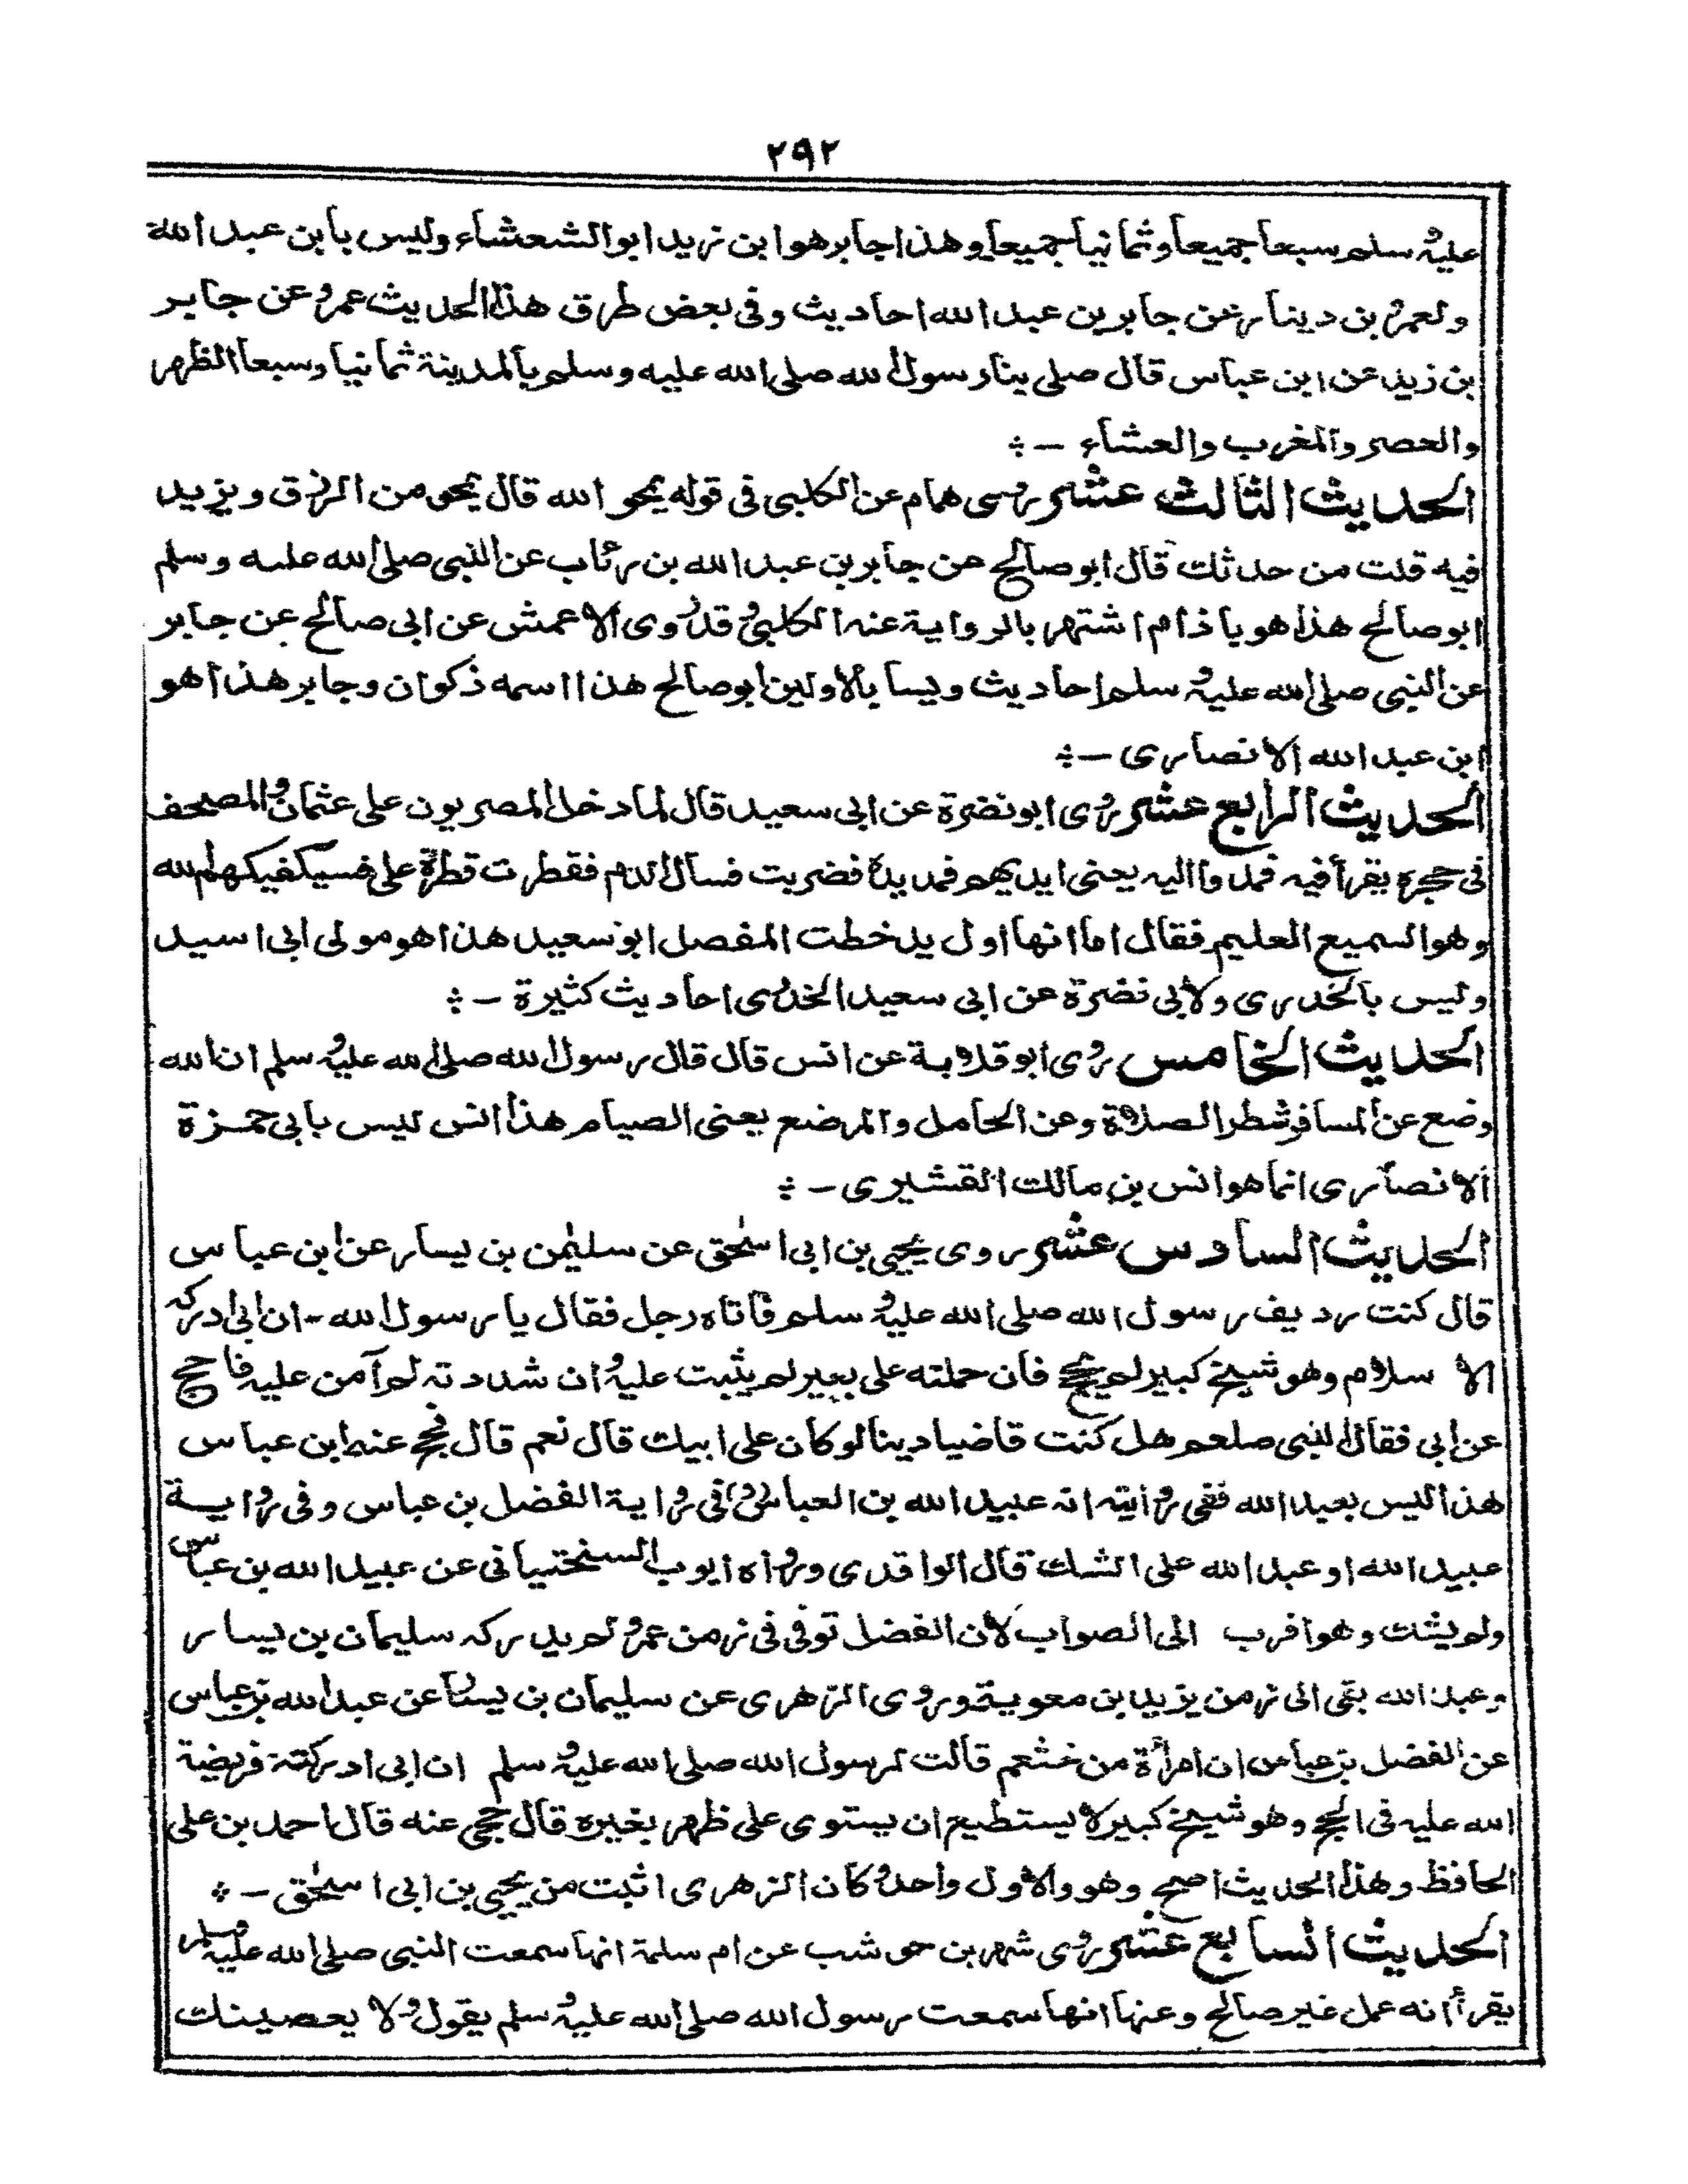 ٢٩٢
عليه و سلم سبعا جميعا وثمانيا جميعا وهذا جابر هو ابن زيد ابو الشعشاء وليس بابن عبد الله
ولعمرو بن دينار عن جابر بن عبد الله احاديث وفى بعض طرق هذا الحديث عمرو عن جابر
بن زيد عن ابن عباس قال صلى بنا رسول الله صلى الله عليه وسلم بالمدينة ثمانيا وسبعا الظهر
والعصر والمغرب والعشاء -
الحديث الثالث عشر روى همام عن الكلبى فى قوله يمحو الله قال يمحو من الرزق ويزيد
فيه قلت من حدثك قال ابو صالح عن جابر بن عبد الله بن رئاب عن النبى صلى الله عليه وسلم
ابو صالح هذا هو باذام اشتهر بالرواية عنه الكلبى و قد روى الاعمش عن ابى صالح عن جابر
عن النبى صلى الله عليه و سلم احاديث وليسا بالاولين ابو صالح هذا اسمه ذكوان وجابر هذا هو
ابن عبد الله الانصارى -
الحديث الرابع عشر روى ابو نضرة عن ابى سعيد قال لما دخل المصريون على عثمان و المصحف
فى حجره يقرأ فيه فمدوا اليه يعنى ايديهم فمد يده فضربت فسال الدم فقطرت قطرة على فسيكفيكهم الله
وهو السميع العليم فقال اما انها اول يد خطت المفصل ابو سعيد هذا هو مولى ابى اسيد
وليس بالخدرى ولابى نضرة عن ابى سعيد الخدرى احاديث كثيرة -
الحديث الخامس روى ابو قلابة عن انس قال قال رسول الله صلى الله عليه و سلم ان الله
وضع عن المسافر شطر الصلاة وعن الحامل والمرضع يعنى الصيام هذا انس ليس بابى حمزة
الانصارى انما هو انس بن مالك القشيرى -
الحديث السادس عشر روى يحيى بن ابى اسحٰق عن سليمٰن بن يسار عن ابن عباس
قال كنت رديف رسول الله صلى الله عليه و سلم فاتاه رجل فقال يا رسول الله - ان ابى ادركه
الا سلام وهو شيخ كبير لم يحج فان حملته على بعير لم يثبت عليه و ان شددته لم آمن عليه فاحج
عن ابى فقال النبى صلعم هل كنت قاضيا دينا لو كان على ابيك قال نعم قال فحج عنه ابن عباس
هذا ليس بعبد الله ففى روايته انه عبيد الله بن العباس و فى رواية الفضل بن عباس وفى رواية
عبيد الله او عبد الله على الشك قال الواقدى ورواه ايوب السختيانى عن عبيد الله بن عباس
ولم يشك وهو اقرب الى الصواب لان الفضل توفى فى زمن عمر و لم يدركه سليمان بن يسار
وعبد الله بقى الى زمن يزيد بن معوية وروى الزهرى عن سليمان بن يسار عن عبد الله بن عباس
عن الفضل بن عباس ان امرأة من خثعم قالت لرسول الله صلى الله عليه و سلم ان ابى ادركته فريضة
الله عليه فى الحج وهو شيخ كبير لا يستطيع ان يستوى على ظهر بغيره قال حجى عنه قال احمد بن على
الحافظ وهذا الحديث اصح وهو والاول واحد و كان الزهرى اثبت من يحيى بن ابى اسحٰق -
الحديث السابع عشر روى شهر بن حوشب عن ام سلمة انها سمعت النبى صلى الله عليه وسلم
يقرأ انه عمل غير صالح وعنها انها سمعت رسول الله صلى الله عليه و سلم يقول و لا يعصينك